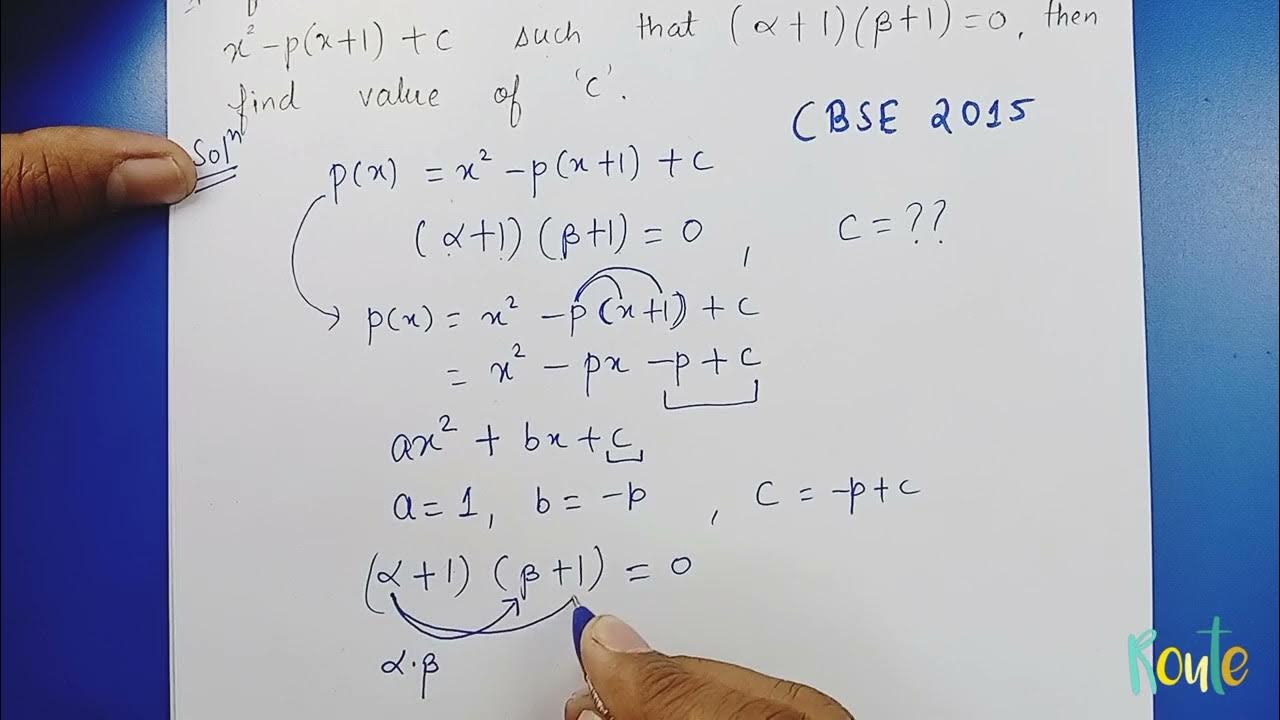 x² - p(x+1) + c such that (α+1)(β+1) = 0, then
find value of 'c'.
CBSE 2015
Solⁿ
p(x) = x² - p(x+1) + c
(α+1)(β+1) = 0, c = ??
p(x) = x² - p(x+1) + c
= x² - px - p + c
ax² + bx + c
a = 1, b = -p, c = -p+c
(α+1)(β+1) = 0
α·β
Route